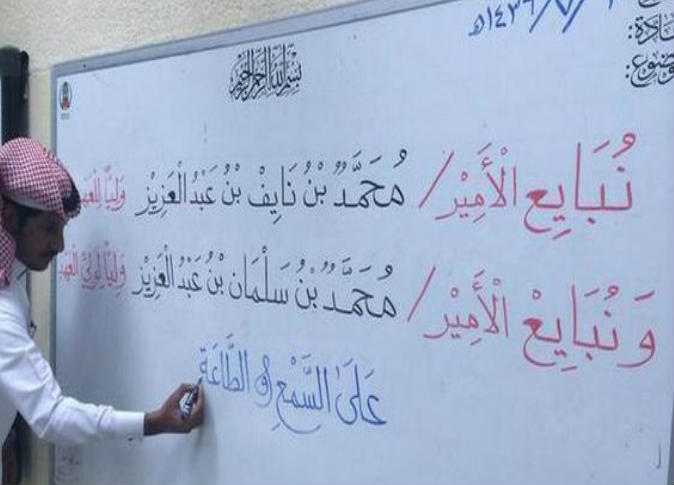 ١٤٣٦/٧/
بسم الله الرحمن الرحيم
نُبَايِع الْأَمِيْر/ مُحَمَّدُ بْنُ نَايِفْ بْنُ عَبْدُ الْعَزِيْز وَلِيًّا لِلْعَهد
وَنُبَايِعْ الْأَمِيْر/ مُحَمَّدُ بْنُ سَلْمَان بْنُ عَبْدُ الْعَزِيْز وَلِيًّا لِوَلِيِّ الْعَهْد
عَلَىٰ السَّمْعِ وَ الطَّاعَة